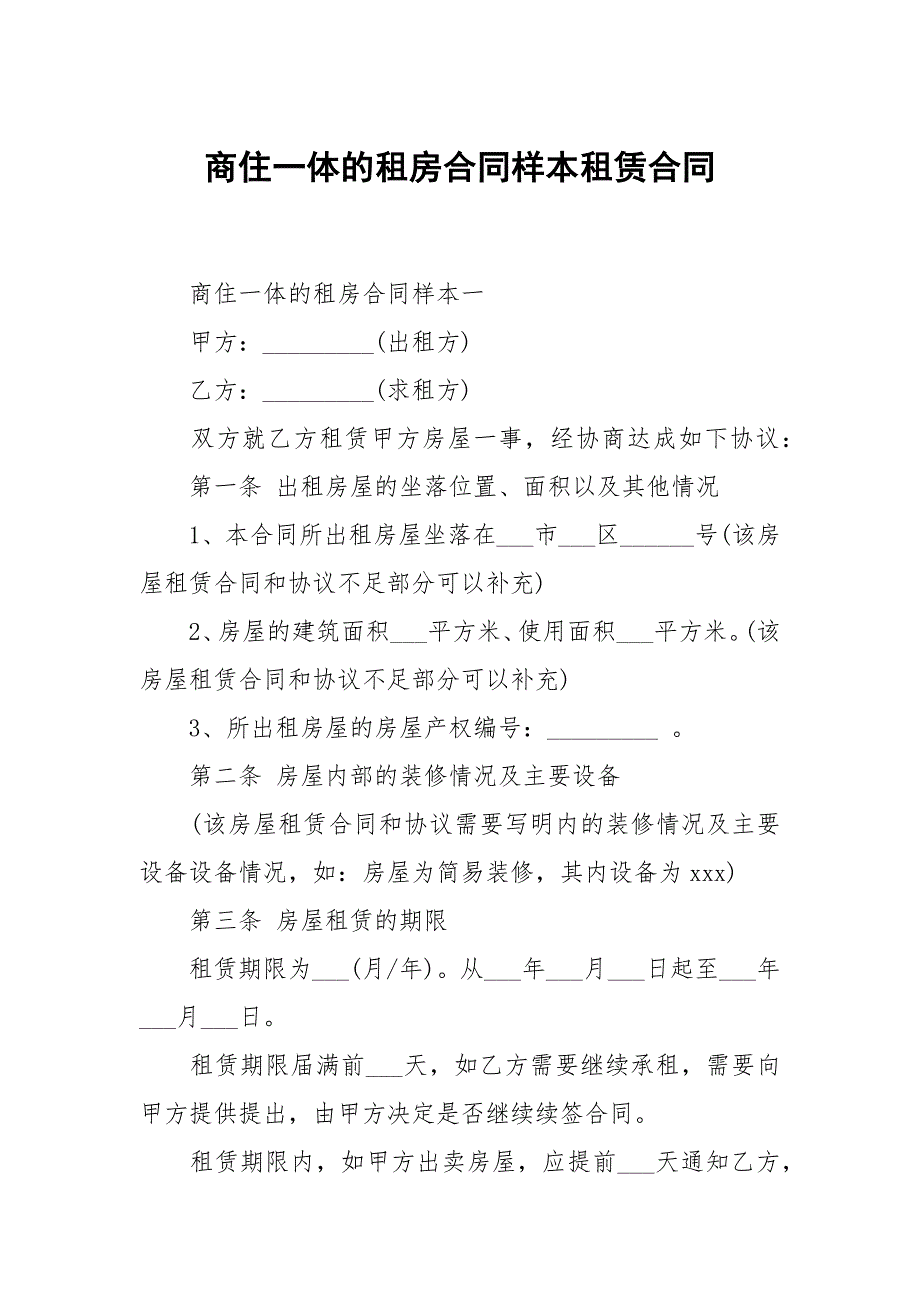 商住一体的租房合同样本租赁合同
商住一体的租房合同样本一
甲方：_________(出租方)
乙方：_________(求租方)
双方就乙方租赁甲方房屋一事，经协商达成如下协议：
第一条 出租房屋的坐落位置、面积以及其他情况
1、本合同所出租房屋坐落在___市___区______号(该房
屋租赁合同和协议不足部分可以补充)
2、房屋的建筑面积___平方米、使用面积___平方米。(该
房屋租赁合同和协议不足部分可以补充)
3、所出租房屋的房屋产权编号：_________ 。
第二条 房屋内部的装修情况及主要设备
(该房屋租赁合同和协议需要写明内的装修情况及主要
设备设备情况，如：房屋为简易装修，其内设备为 xxx)
第三条 房屋租赁的期限
租赁期限为___(月/年)。从___年___月___日起至___年
___月___日。
租赁期限届满前___天，如乙方需要继续承租，需要向
甲方提供提出，由甲方决定是否继续续签合同。
租赁期限内，如甲方出卖房屋，应提前___天通知乙方，